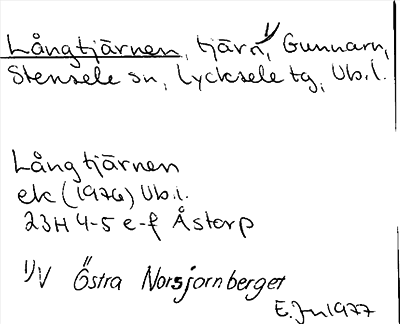 Långtjärnen, tjärn, 1) Gunnarn,
Stensele sn, Lycksele tg, Vb.l.
Långtjärnen
ek (1976) Vb.l.
23H 4-5 e-f Åstorp
1) V Östra Norsjornberget
E. Ju 1977